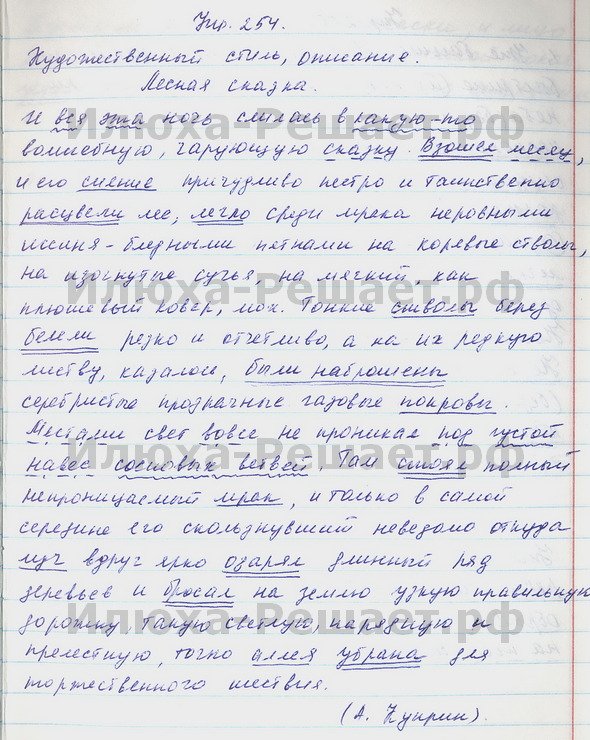 Упр. 254.
Художественный стиль, описание.
Лесная сказка.
И вся эта ночь слилась в какую-то
Илюха-Решает.рф
волшебную, чарующую сказку. Взошел месяц,
и его сияние причудливо пестро и таинственно
расцвели лес, легло среди мрака неровными
иссиня-бледными пятнами на корявые стволы,
на изогнутые сучья, на мягкий, как
Илюха-Решает.рф
плюшевый ковер, мох. Тонкие стволы берез
белели резко и отчетливо, а на их редкую
листву, казалось, были наброшены
серебристые прозрачные газовые покровы
Местами свет вовсе не проникал под густой
Илюха-Решает.рф
навес сосновых ветвей. Там стоял полный
непроницаемый мрак, и только в самой
середине его скользнувший неведомо откуда
луч вдруг ярко озарял длинный ряд
деревьев и бросал на землю узкую правильную
Илюха-Решает.рф
дорожку такую светлую, нарядную и
прелестную, точно аллея убрана для
торжественного шествия.
(А. Куприн).